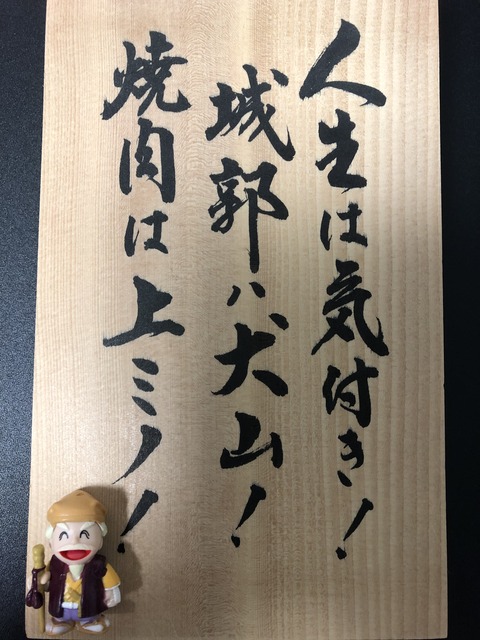 人生は気付き!
城郭ハ犬山!
焼肉は上ミノ!